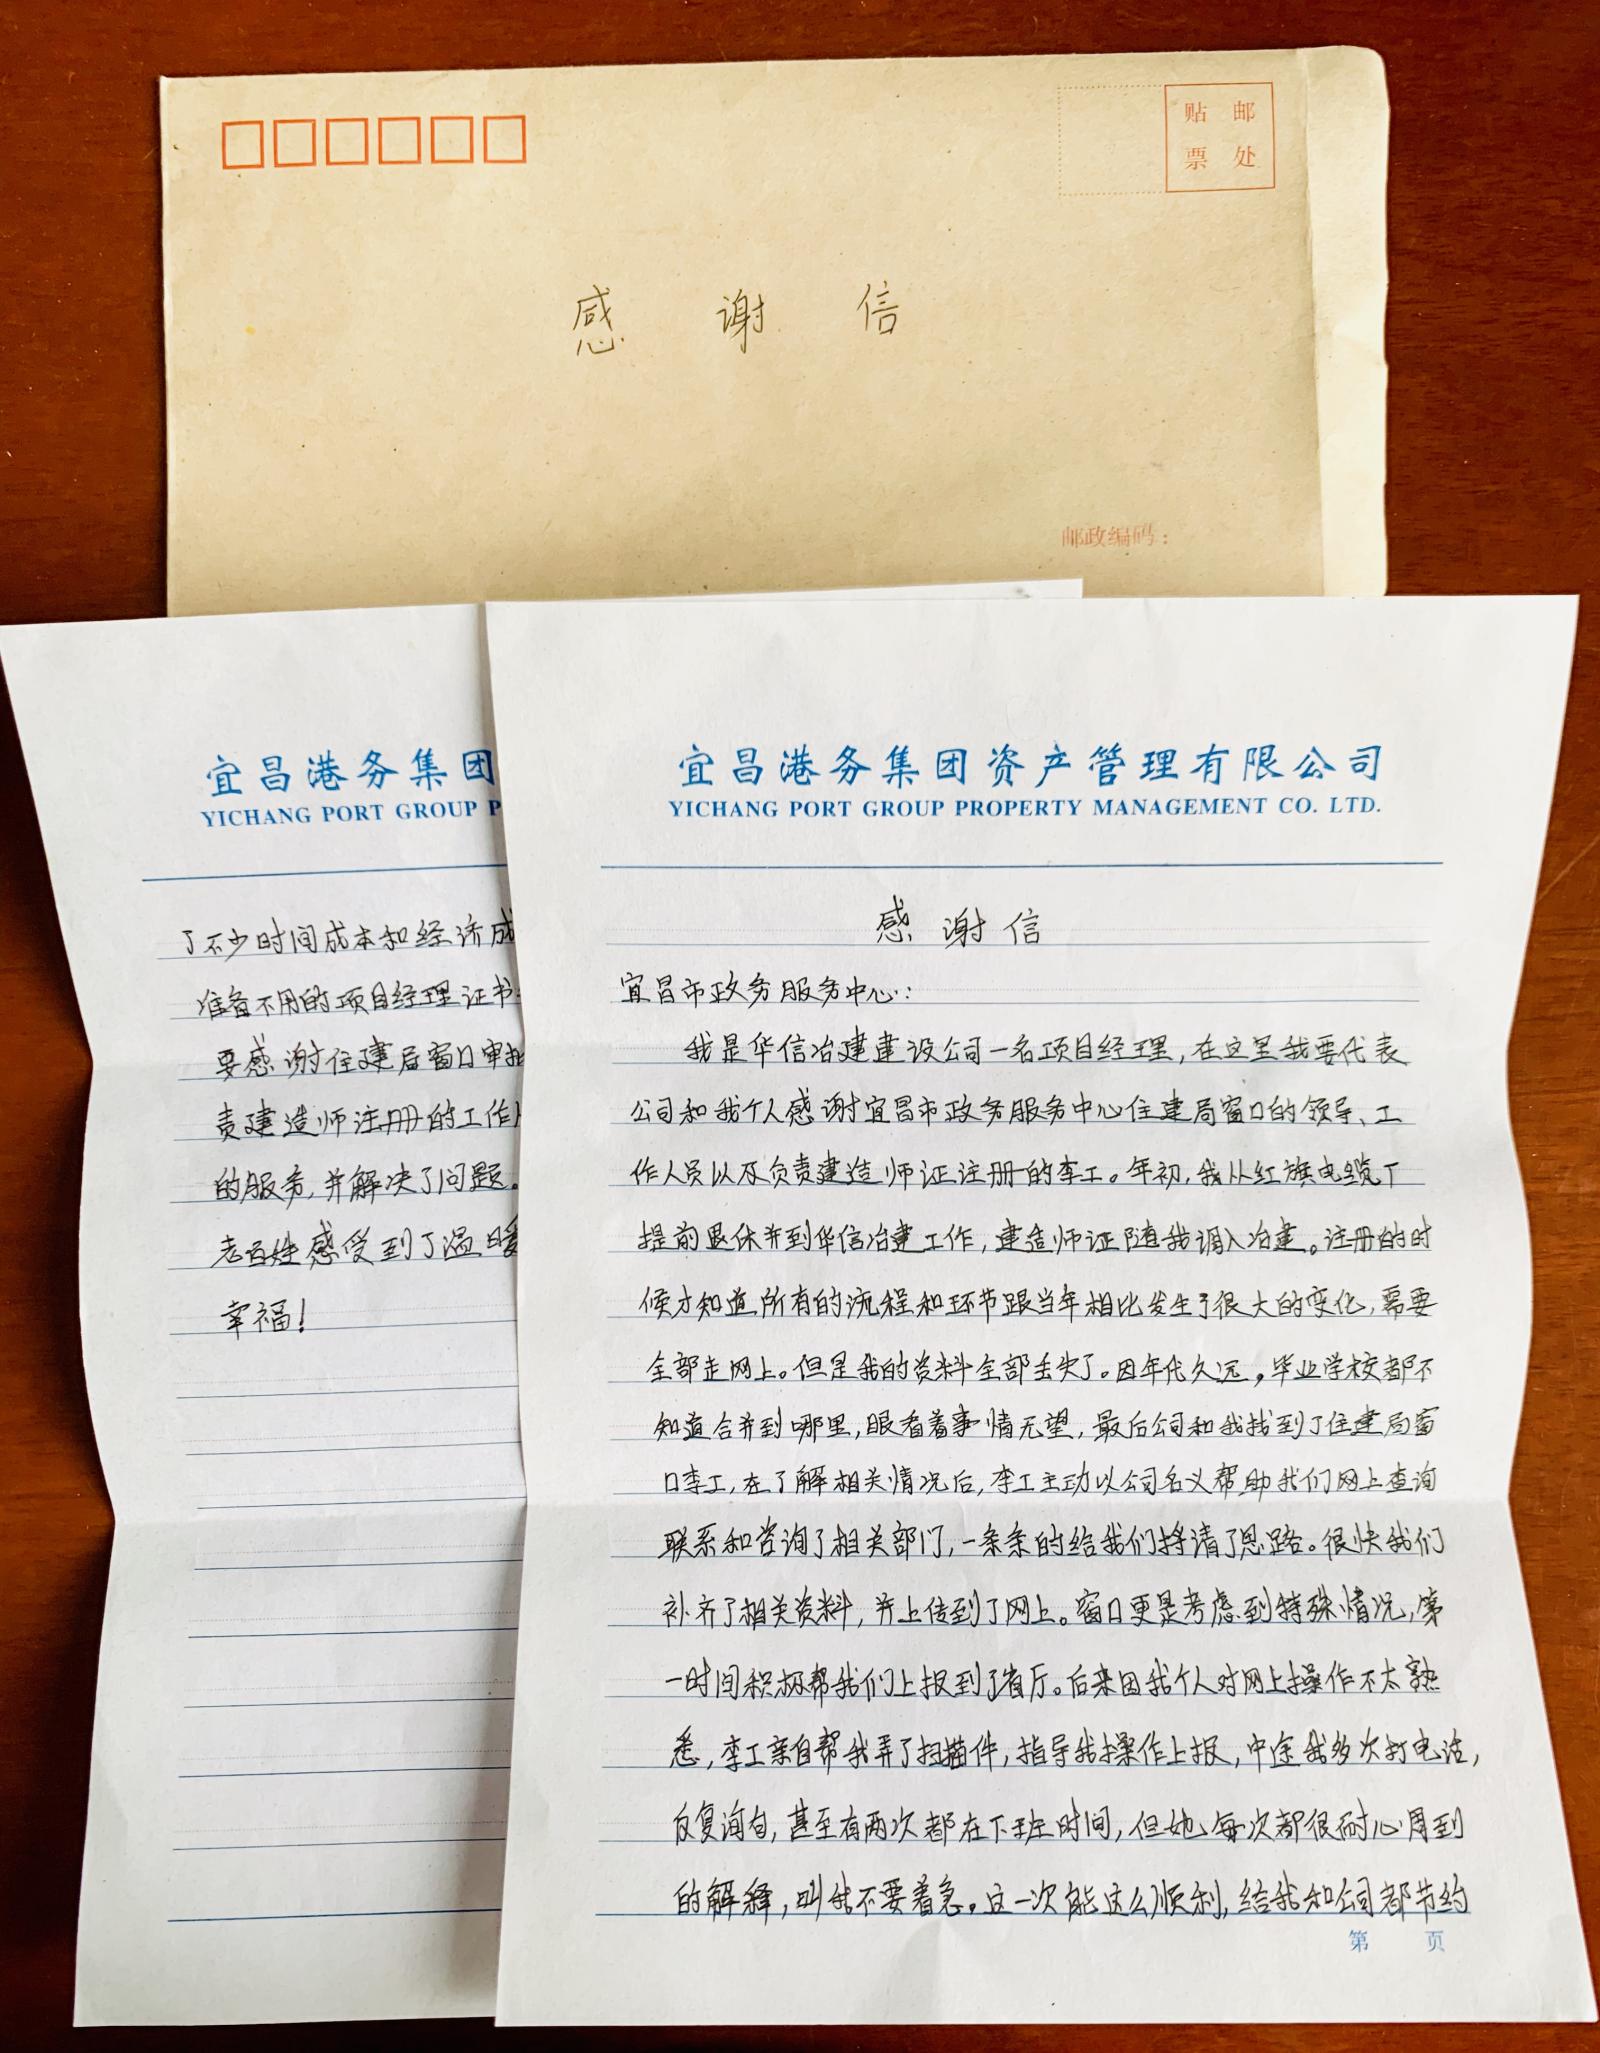 贴 邮
票 处
感 谢 信
邮政编码：
宜昌港务集团资产管理有限公司
YICHANG PORT GROUP PROPERTY MANAGEMENT CO. LTD.
感谢信
宜昌市政务服务中心：
我是华信冶建建设公司一名项目经理，在这里我要代表
公司和我个人感谢宜昌市政务服务中心住建局窗口的领导、工
作人员以及负责建造师证注册的李工。年初，我从红旗电缆厂
提前退休并到华信冶建工作，建造师证随我调入冶建。注册的时
候才知道所有的流程和环节跟当年相比发生了很大的变化，需要
全部走网上。但是我的资料全部丢失了。因年代久远，毕业学校都不
知道合并到哪里，眼看着事情无望，最后公司和我找到了住建局窗
口李工，在了解相关情况后，李工主动以公司名义帮助我们网上查询
联系和咨询了相关部门，一条条的给我们捋清了思路。很快我们
补齐了相关资料，并上传到了网上。窗口更是考虑到特殊情况，第
一时间积极帮我们上报到了省厅。后来因我个人对网上操作不太熟
悉，李工亲自帮我弄了扫描件，指导我操作上报，中途我多次打电话，
反复询问，甚至有两次都在下班时间，但她每次都很耐心周到
的解释，叫我不要着急。这一次能这么顺利，给我和公司都节约
第 页
宜昌港务集团
YICHANG PORT GROUP P
了不少时间成本和经济成
准备不用的项目经理证书
要感谢住建局窗口审批
责建造师注册的工作
的服务，并解决了问题。
老百姓感受到了温暖
幸福！